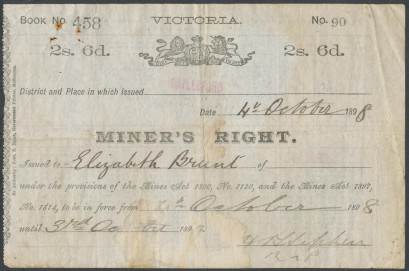 Book No. 458 VICTORIA. No. 90
2s. 6d. 2s. 6d.
District and Place in which issued
Date 4th October 1898
MINER'S RIGHT.
Issued to Elizabeth Brunt of
under the provisions of the Mines Act 1890, No. 1120, and the Mines Act 1897,
No. 1514, to be in force from 4th October 1898
until 3rd Oct 189